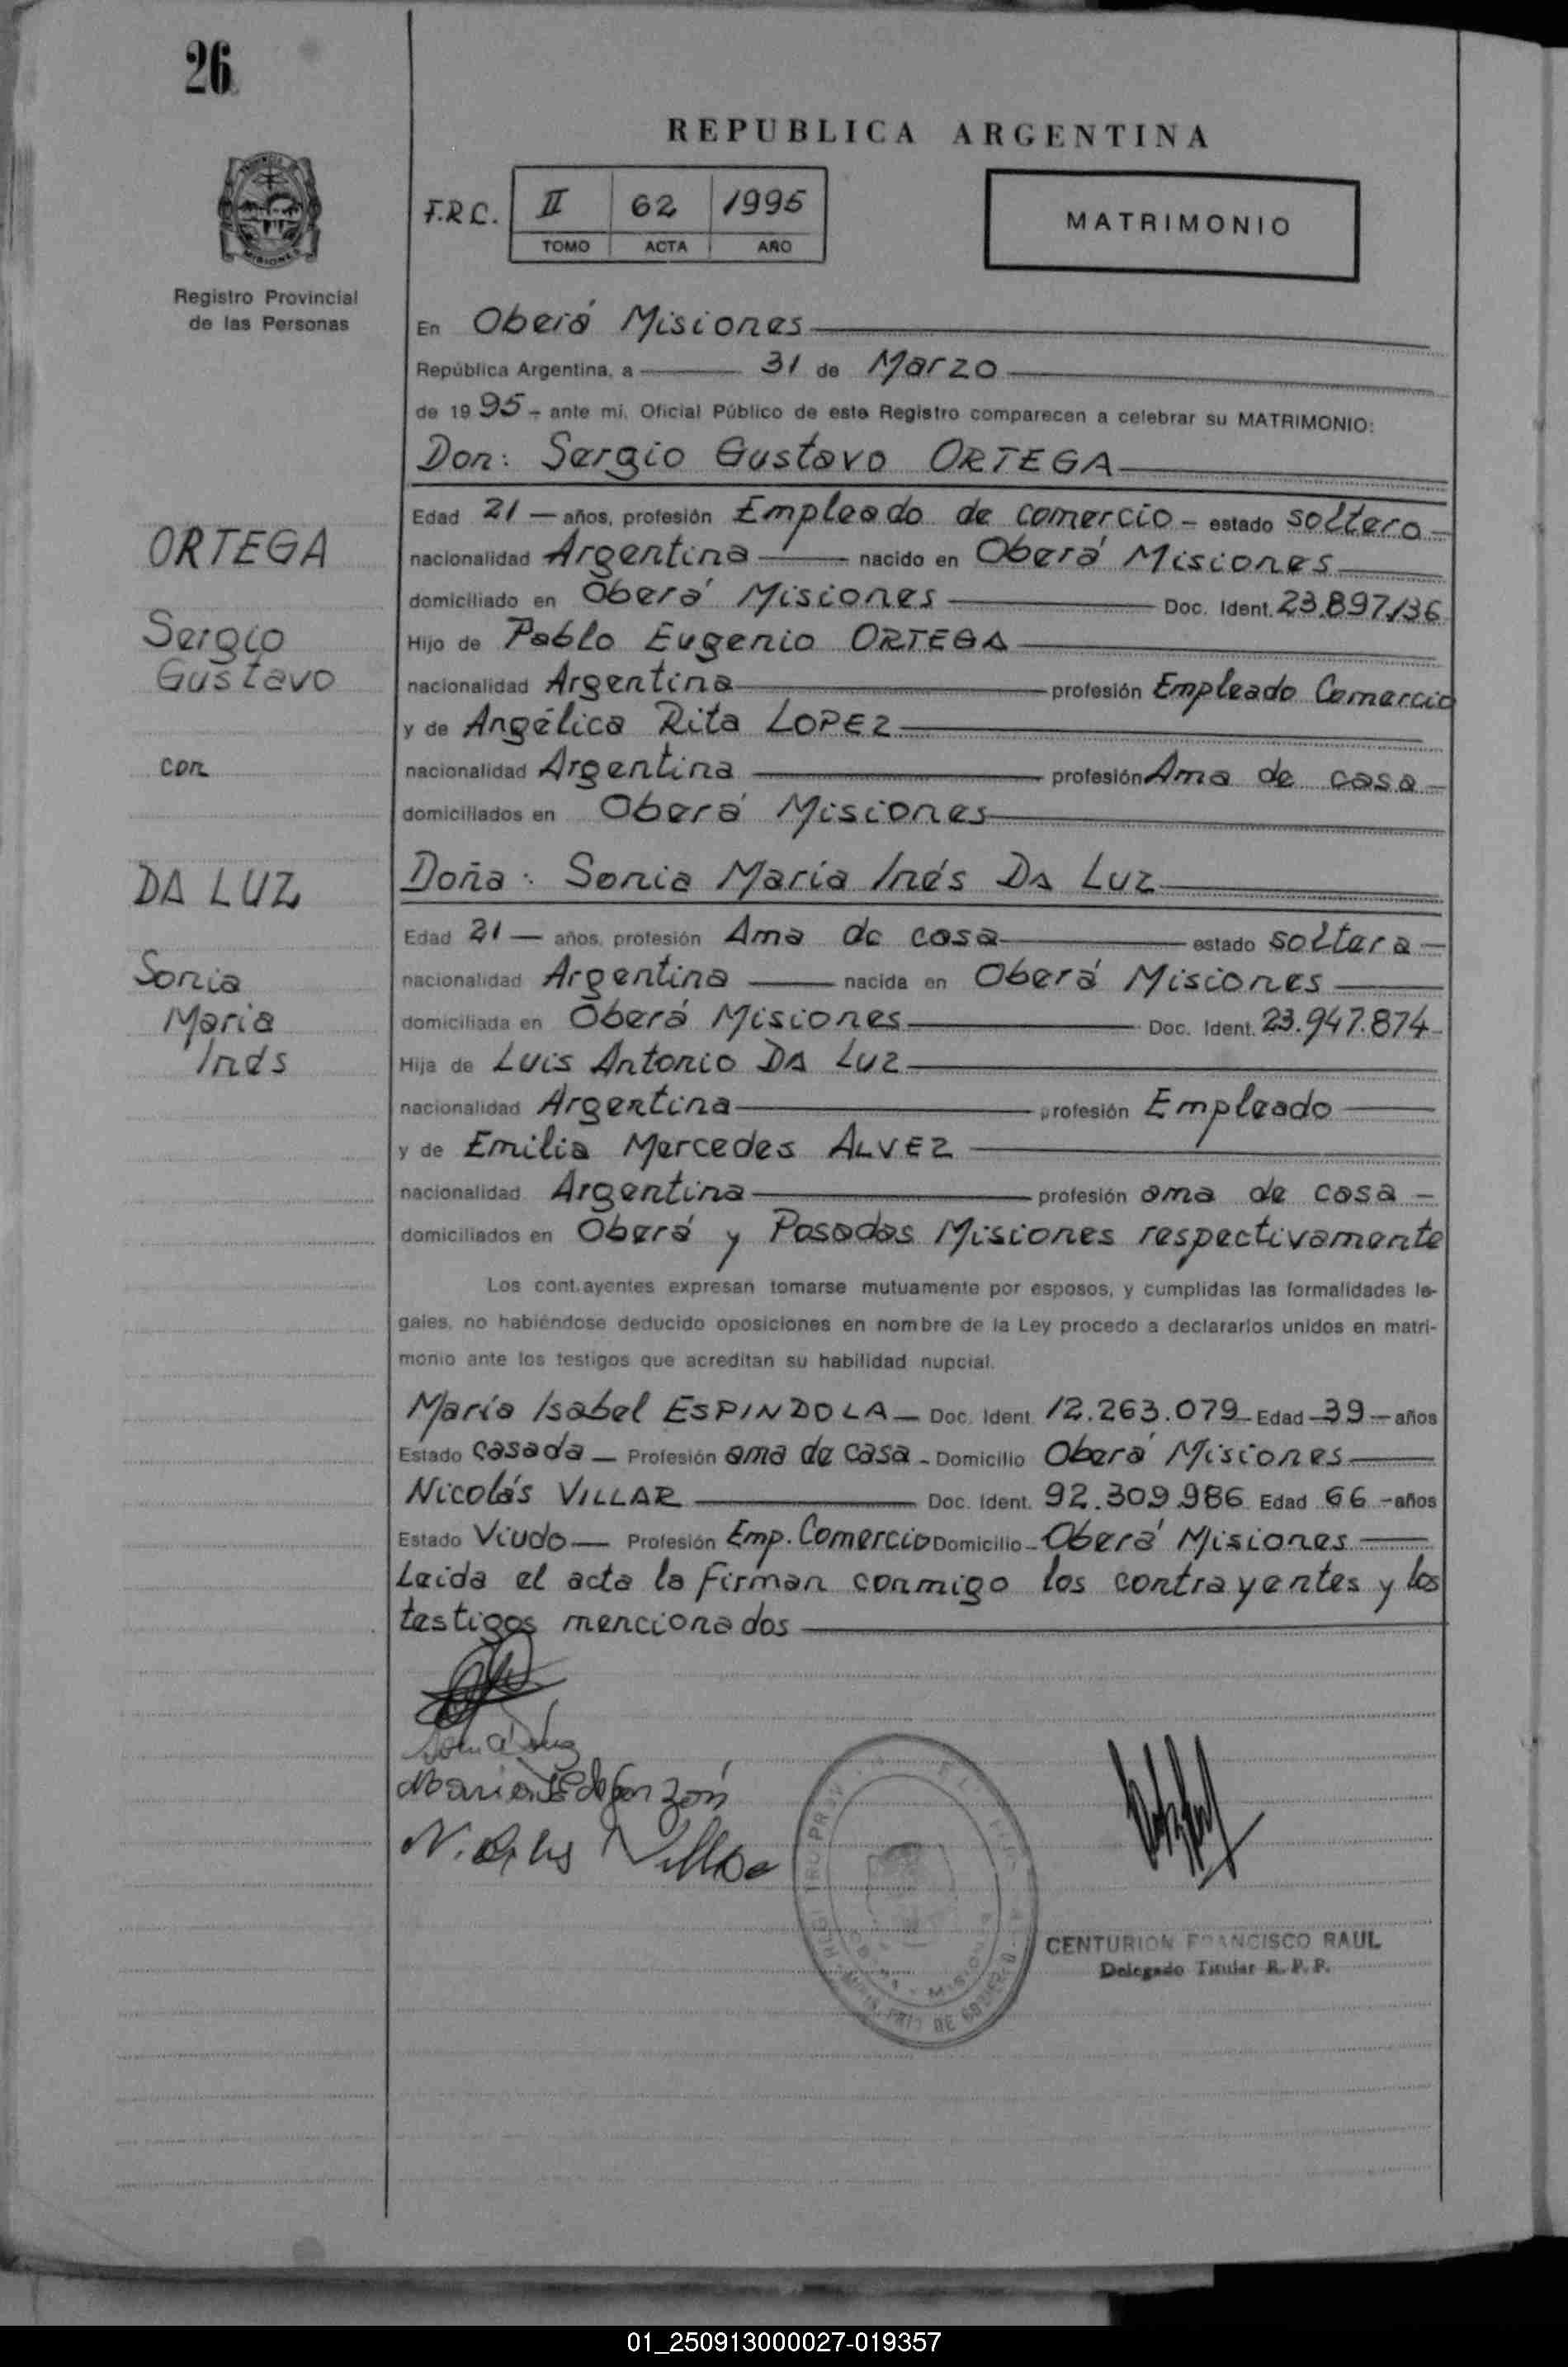 26
REPUBLICA ARGENTINA
F.R.C. II 62 1995
TOMO ACTA AÑO
MATRIMONIO
MISIONES
Registro Provincial
de las Personas
En Oberá Misiones
República Argentina, a 31 de Marzo
de 19 95 - ante mí, Oficial Público de este Registro comparecen a celebrar su MATRIMONIO:
Don: Sergio Gustavo ORTEGA
Edad 21 — años, profesión Empleado de comercio - estado soltero -
nacionalidad Argentina — nacido en Oberá Misiones
domiciliado en Oberá Misiones — Doc. Ident. 23.897.136
Hijo de Pablo Eugenio ORTEGA
nacionalidad Argentina — profesión Empleado Comercio
y de Angélica Rita LOPEZ
nacionalidad Argentina — profesión Ama de casa -
domiciliados en Oberá Misiones
ORTEGA
Sergio
Gustavo
con
DA LUZ
Sonia
Maria
Inés
Doña: Sonia María Inés DA LUZ
Edad 21 — años, profesión Ama de casa — estado soltera —
nacionalidad Argentina — nacida en Oberá Misiones
domiciliada en Oberá Misiones — Doc. Ident. 23.947.874-
Hija de Luis Antonio DA LUZ
nacionalidad Argentina — profesión Empleado
y de Emilia Mercedes ALVEZ
nacionalidad Argentina — profesión ama de casa -
domiciliados en Oberá y Posadas Misiones respectivamente
Los cont.ayentes expresan tomarse mutuamente por esposos, y cumplidas las formalidades le-
gales, no habiéndose deducido oposiciones en nombre de la Ley procedo a declararlos unidos en matri-
monio ante los testigos que acreditan su habilidad nupcial.
María Isabel ESPINDOLA — Doc. Ident. 12.263.079 - Edad - 39 — años
Estado casada — Profesión ama de casa - Domicilio Oberá Misiones
Nicolás VILLAR — Doc. Ident. 92.309.986 Edad 66 - años
Estado Viudo — Profesión Emp. Comercio Domicilio - Oberá Misiones
Leida el acta la firman conmigo los contrayentes y los
testigos mencionados
CENTURION FRANCISCO RAUL
Delegado Titular R. P. P.
01_250913000027-019357